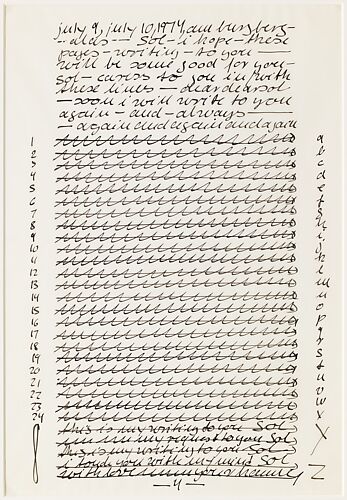 july 9, july 10, 1974, am burgberg-
- Sol - i hope - these
pages - writing - to you -
will be some good for you -
Sol - caress to you in/with
these lines - dear dear sol
- soon i will write to you
again - and - always -
- again and again and again
1 a
2 b
3 c
4 d
5 e
6 f
7 g
8 h
9 i
10 j
11 k
12 l
13 m
14 n
15 o
16 p
17 q
18 r
19 s
20 t
21 u
22 v
23 w
24 x
this is my writing to you Sol
my request to you Sol Y
this is my writing to you Sol
i touch you with my mind Sol
with love your Hanne Z